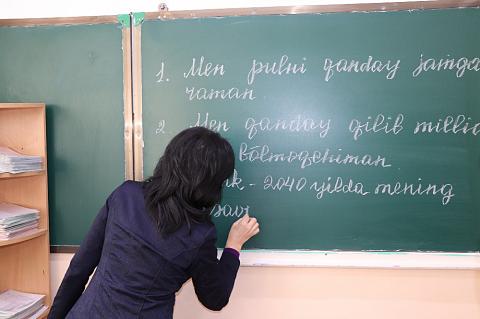 1. Men pulni qanday jamga
raman.
2. Men qanday qilib millio
bo'lmoqchiman
- 2040 yilda mening